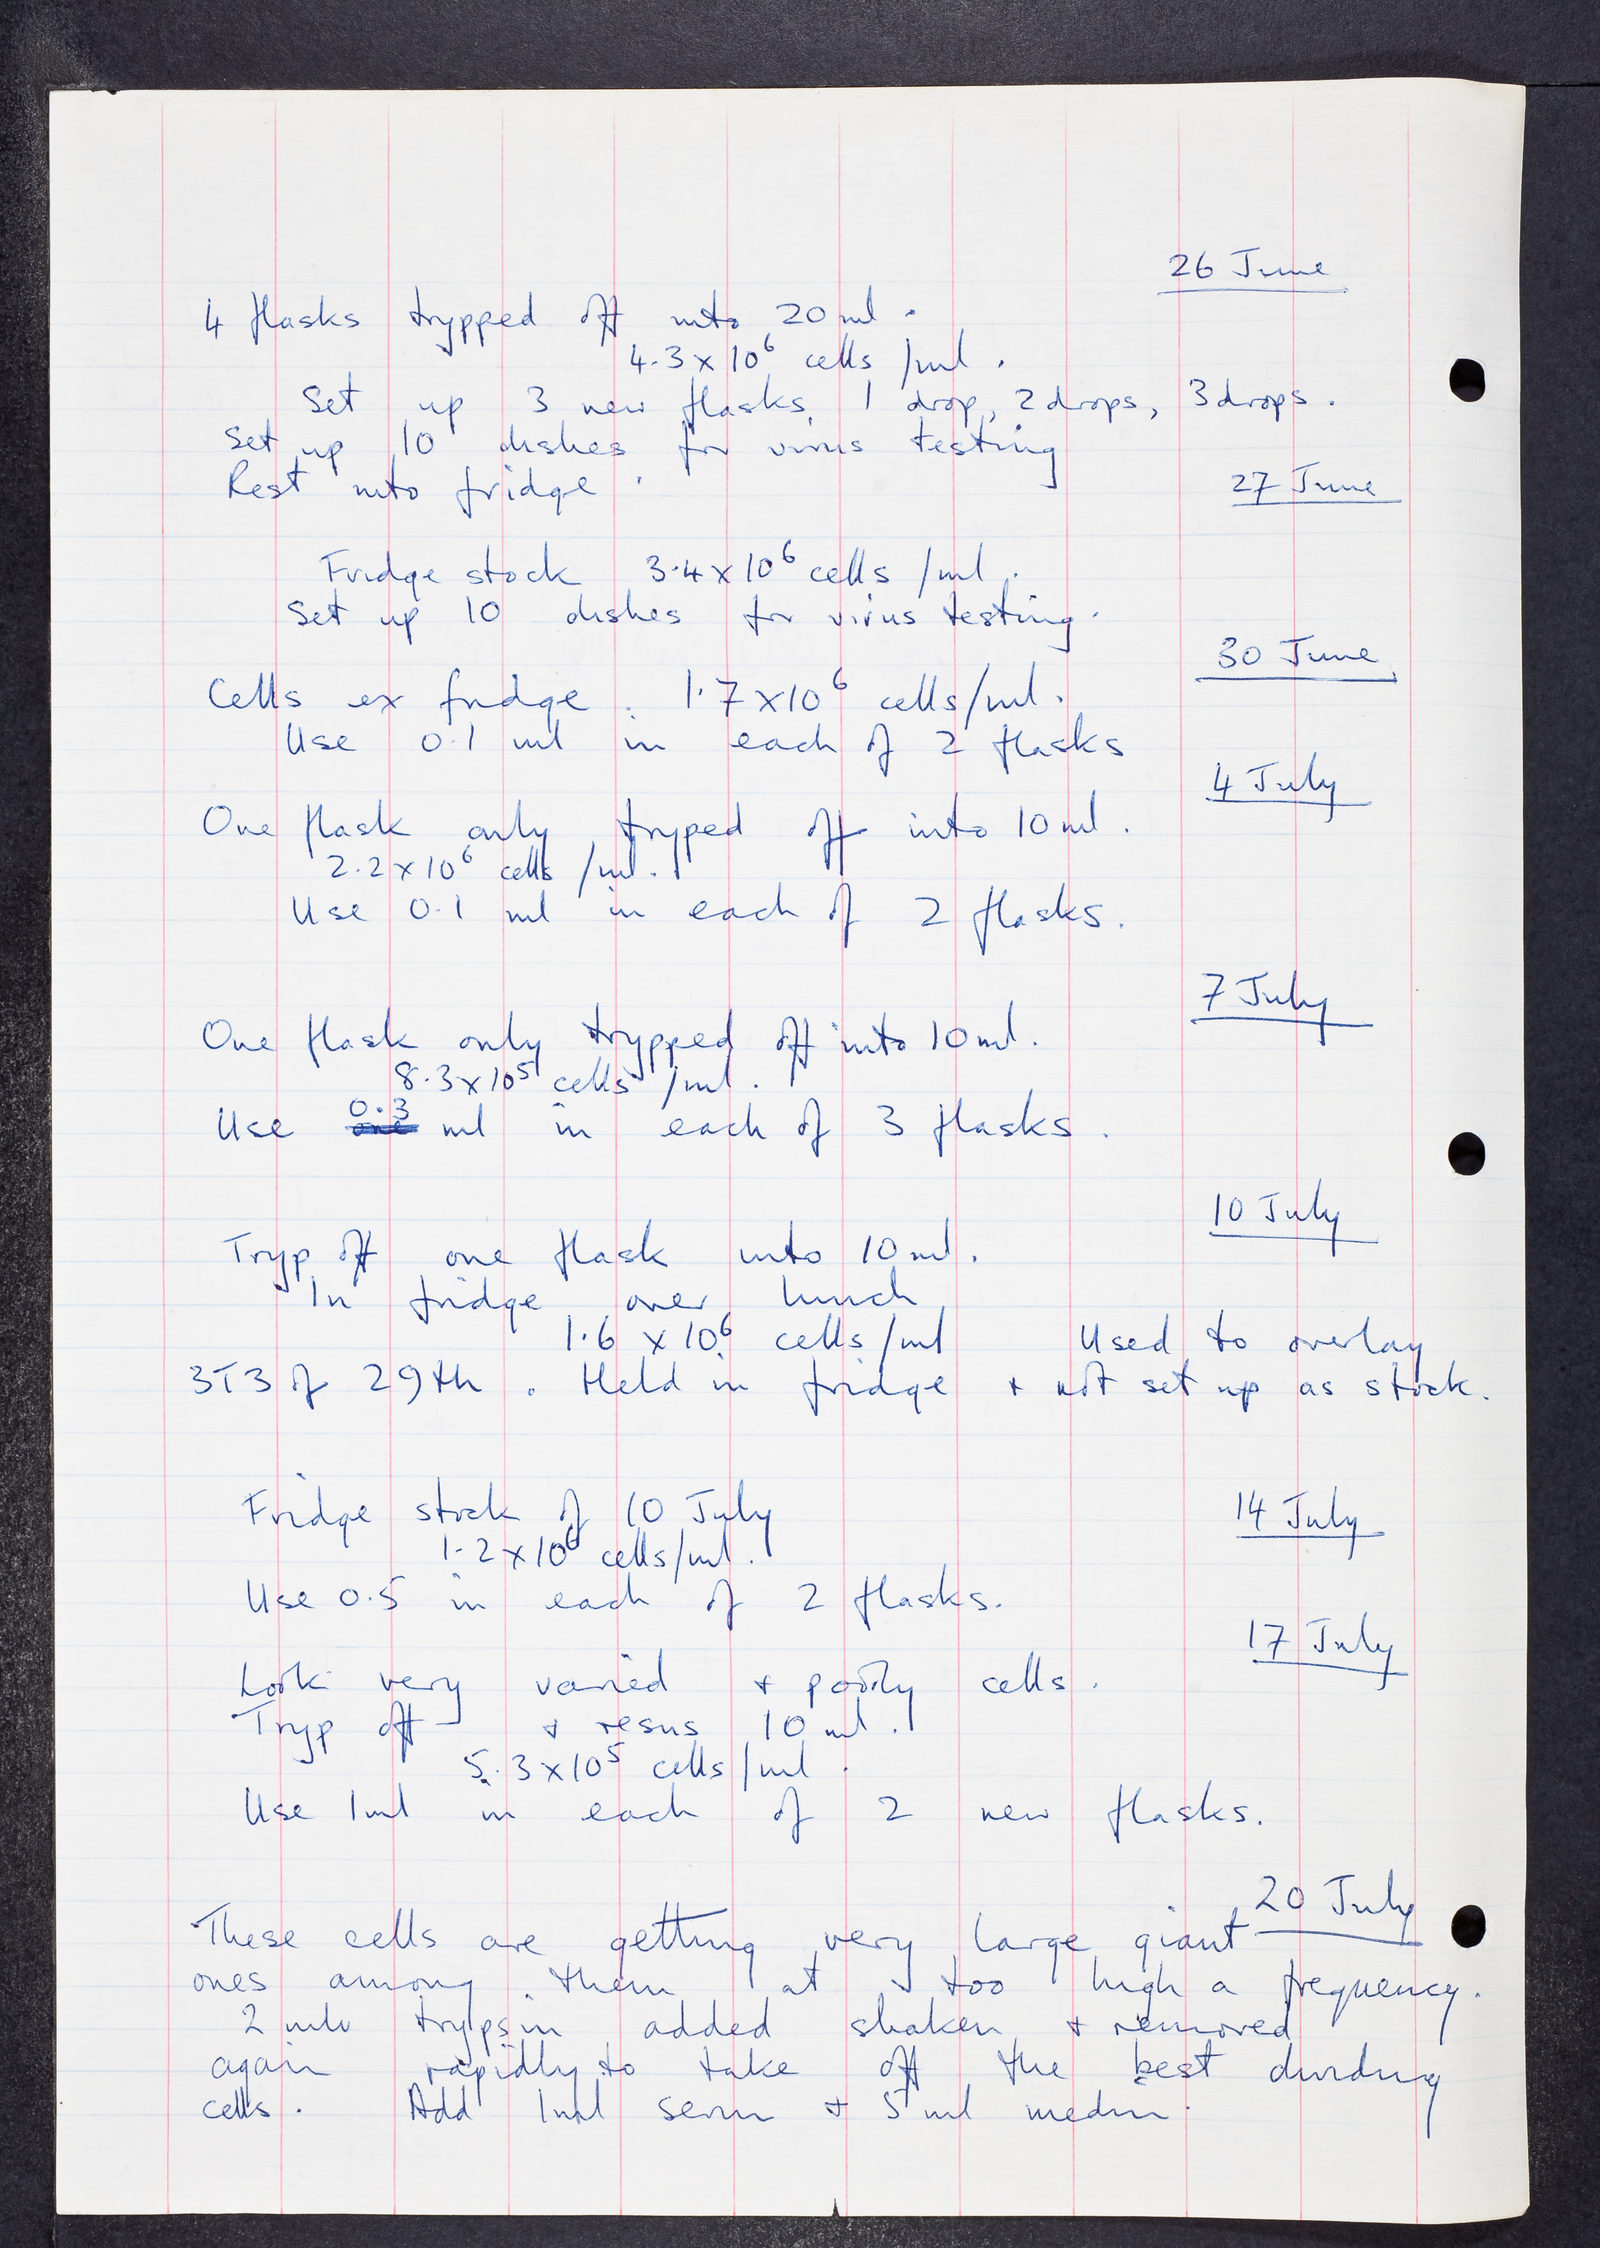 26 June
4 flasks trypped off into 20 ml.
4.3 x 10⁶ cells /ml.
Set up 3 new flasks, 1 drop, 2 drops, 3 drops.
Set up 10 dishes for virus testing
Rest into fridge.
27 June
Fridge stock 3.4 x 10⁶ cells /ml.
Set up 10 dishes for virus testing.
30 June
Cells ex fridge. 1.7 x 10⁶ cells/ml.
Use 0.1 ml in each of 2 flasks
4 July
One flask only tryped off into 10 ml.
2.2 x 10⁶ cells /ml.
Use 0.1 ml in each of 2 flasks.
7 July
One flask only trypped off into 10 ml.
8.3 x 10⁵ cells /ml.
0.3
Use one ml in each of 3 flasks.
10 July
Tryp off one flask into 10 ml.
In fridge over lunch
1.6 x 10⁶ cells/ml Used to overlay
3T3 of 29th. Held in fridge + not set up as stock.
14 July
Fridge stock of 10 July
1.2 x 10⁶ cells/ml.
Use 0.5 in each of 2 flasks.
17 July
Look very varied + poorly cells.
Tryp off + resus 10 ml.
5.3 x 10⁵ cells/ml.
Use 1ml in each of 2 new flasks.
20 July
These cells are getting very large giant
ones among them at too high a frequency.
2 mls trypsin added shaken + removed
again rapidly to take off the best dividing
cells. Add 1ml serum + 5 ml medium.